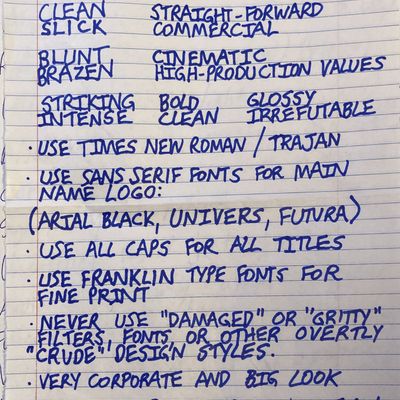 CLEAN STRAIGHT-FORWARD
SLICK COMMERCIAL
BLUNT CINEMATIC
BRAZEN HIGH-PRODUCTION VALUES
STRIKING BOLD GLOSSY
INTENSE CLEAN IRREFUTABLE
· USE TIMES NEW ROMAN / TRAJAN
· USE SANS SERIF FONTS FOR MAIN
NAME LOGO:
(ARIAL BLACK, UNIVERS, FUTURA)
· USE ALL CAPS FOR ALL TITLES
· USE FRANKLIN TYPE FONTS FOR
FINE PRINT
· NEVER USE "DAMAGED" OR "GRITTY"
FILTERS, FONTS, OR OTHER OVERTLY
"CRUDE" DESIGN STYLES.
· VERY CORPORATE AND BIG LOOK